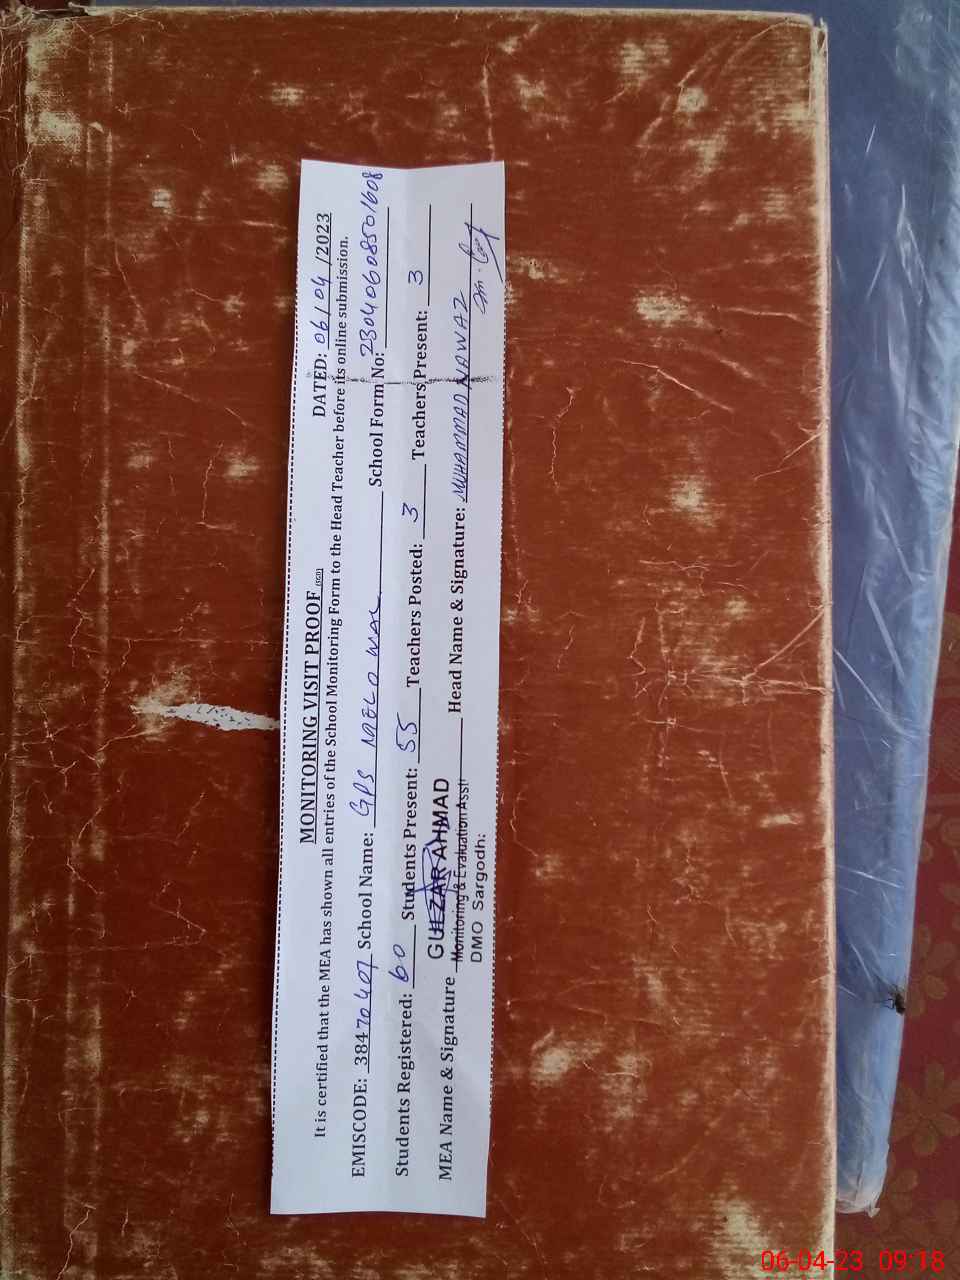 MONITORING VISIT PROOF (SGD)
DATED: 06/04/2023
It is certified that the MEA has shown all entries of the School Monitoring Form to the Head Teacher before its online submission.
EMISCODE: 38470407 School Name: GPS School Form No: 23040608501608
Students Registered: 60 Students Present: 55 Teachers Posted: 3 Teachers Present: 3
MEA Name & Signature GULZAR AHMAD Head Name & Signature: MUHAMMAD NAWAZ
Monitoring & Evaluation Asst:
DMO Sargodh:
06-04-23 09:18